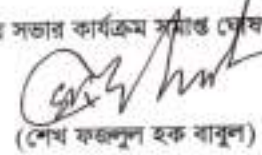 সভার কার্যক্রম সমাপ্ত ঘোষ
(শেখ ফজলুল হক বাবুল)